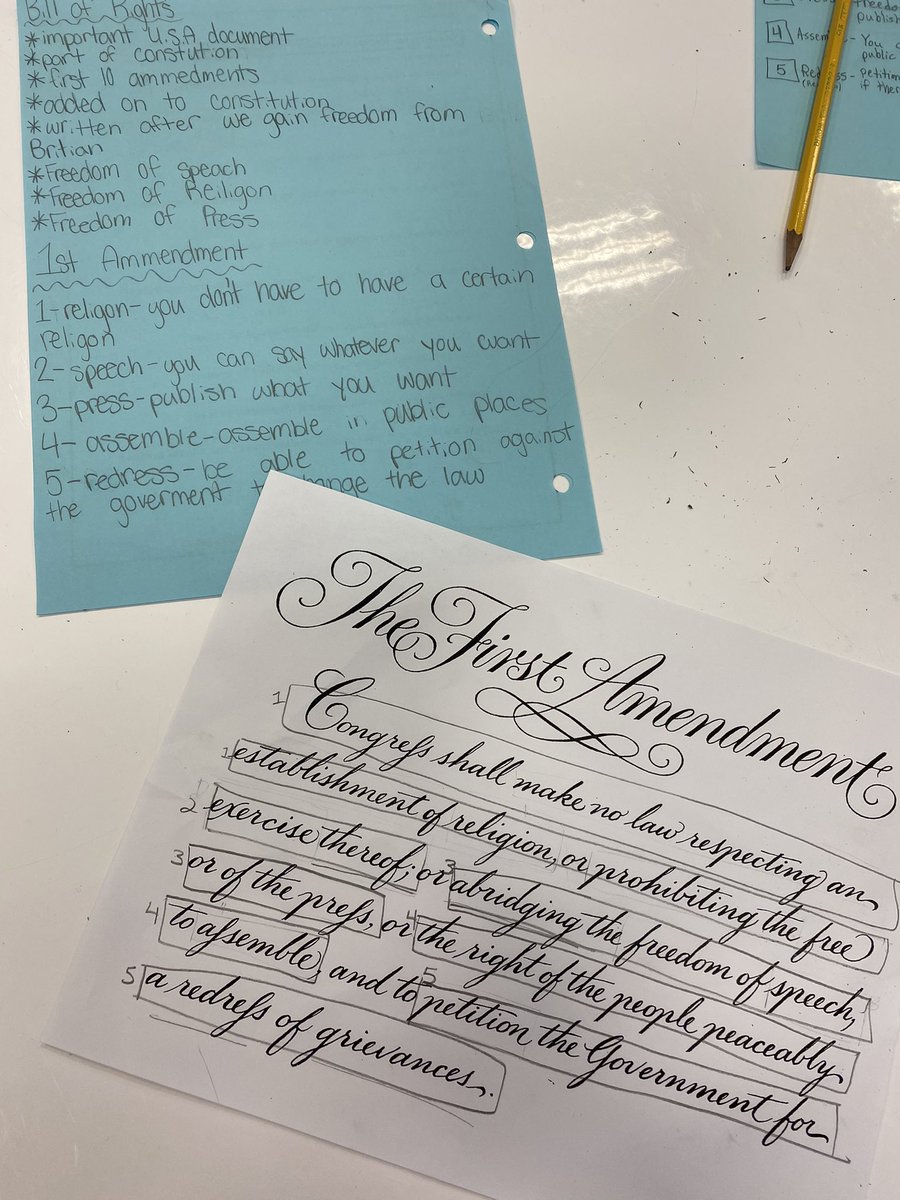 Bill of Rights
*important U.S.A. document
*part of constution
*first 10 ammedments
*added on to constitution
*written after we gain freedom from
Britian
*Freedom of speach
*Freedom of Reiligon
*Freedom of Press
1st Ammendment
1-religon-you don't have to have a certain
religon
2-speech-you can say whatever you want
3-press-publish what you want
4-assemble-assemble in public places
5-redress-be able to petition against
the goverment the law
publish
4 You
public
5 petition
if
The First Amendment
1 Congreſs shall make no law respecting an
1 establishment of religion, or prohibiting the free
2 exercise thereof; or 3 abridging the freedom of speech,
3 or of the preſs, or 4 the right of the people peaceably
4 to aſsemble, and to 5 petition the Government for
5 a redreſs of grievances.